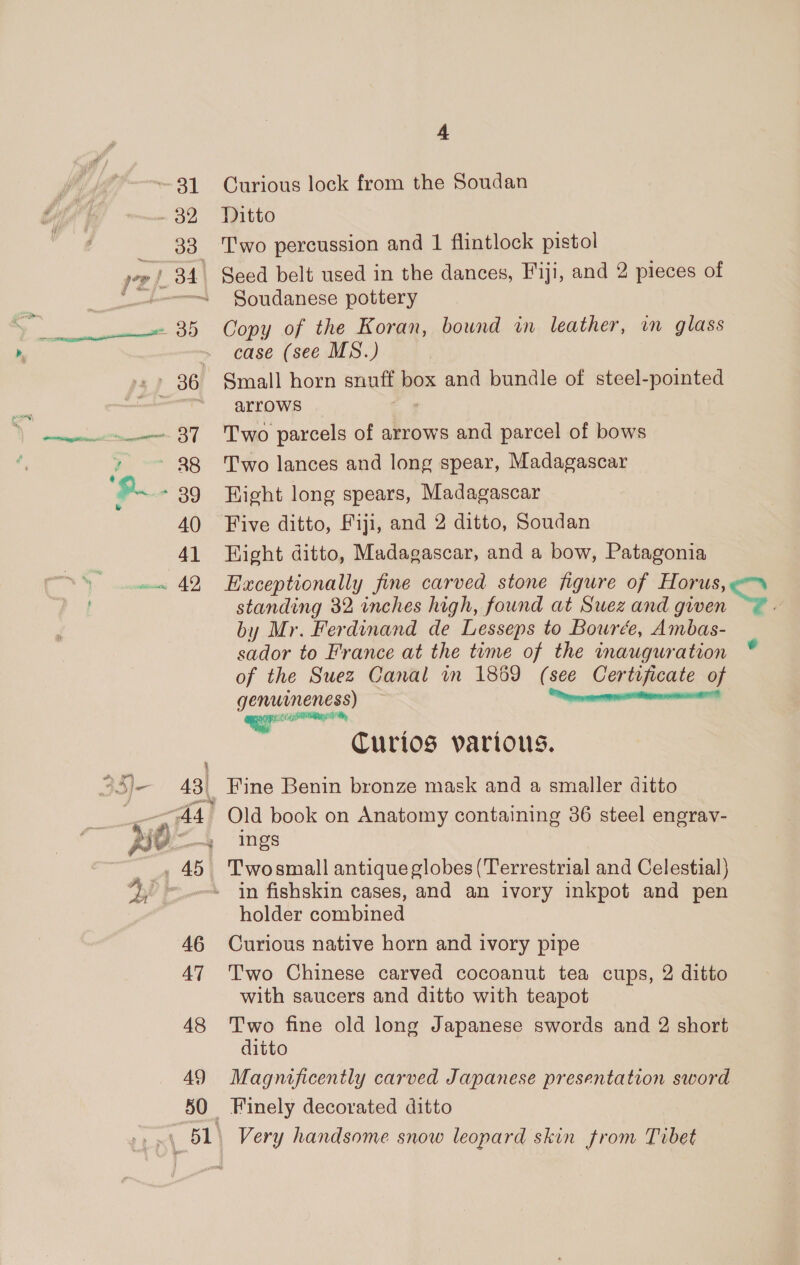 4
31 Curious lock from the Soudan
32 Ditto
33 Two percussion and 1 flintlock pistol
34 Seed belt used in the dances, Fiji, and 2 pieces of
Soudanese pottery
35 Copy of the Koran, bound in leather, in glass
case (see MS.)
36 Small horn snuff box and bundle of steel-pointed
arrows
37 Two parcels of arrows and parcel of bows
38 Two lances and long spear, Madagascar
39 Eight long spears, Madagascar
40 Five ditto, Fiji, and 2 ditto, Soudan
41 Eight ditto, Madagascar, and a bow, Patagonia
42 Exceptionally fine carved stone figure of Horus,
standing 32 inches high, found at Suez and given
by Mr. Ferdinand de Lesseps to Bourée, Ambas-
sador to France at the time of the inauguration
of the Suez Canal in 1869 (see Certificate of
genuineness)
Curios various.
43 Fine Benin bronze mask and a smaller ditto
44 Old book on Anatomy containing 36 steel engrav-
ings
45 Two small antique globes (Terrestrial and Celestial)
in fishskin cases, and an ivory inkpot and pen
holder combined
46 Curious native horn and ivory pipe
47 Two Chinese carved cocoanut tea cups, 2 ditto
with saucers and ditto with teapot
48 Two fine old long Japanese swords and 2 short
ditto
49 Magnificently carved Japanese presentation sword
50 Finely decorated ditto
51 Very handsome snow leopard skin from Tibet